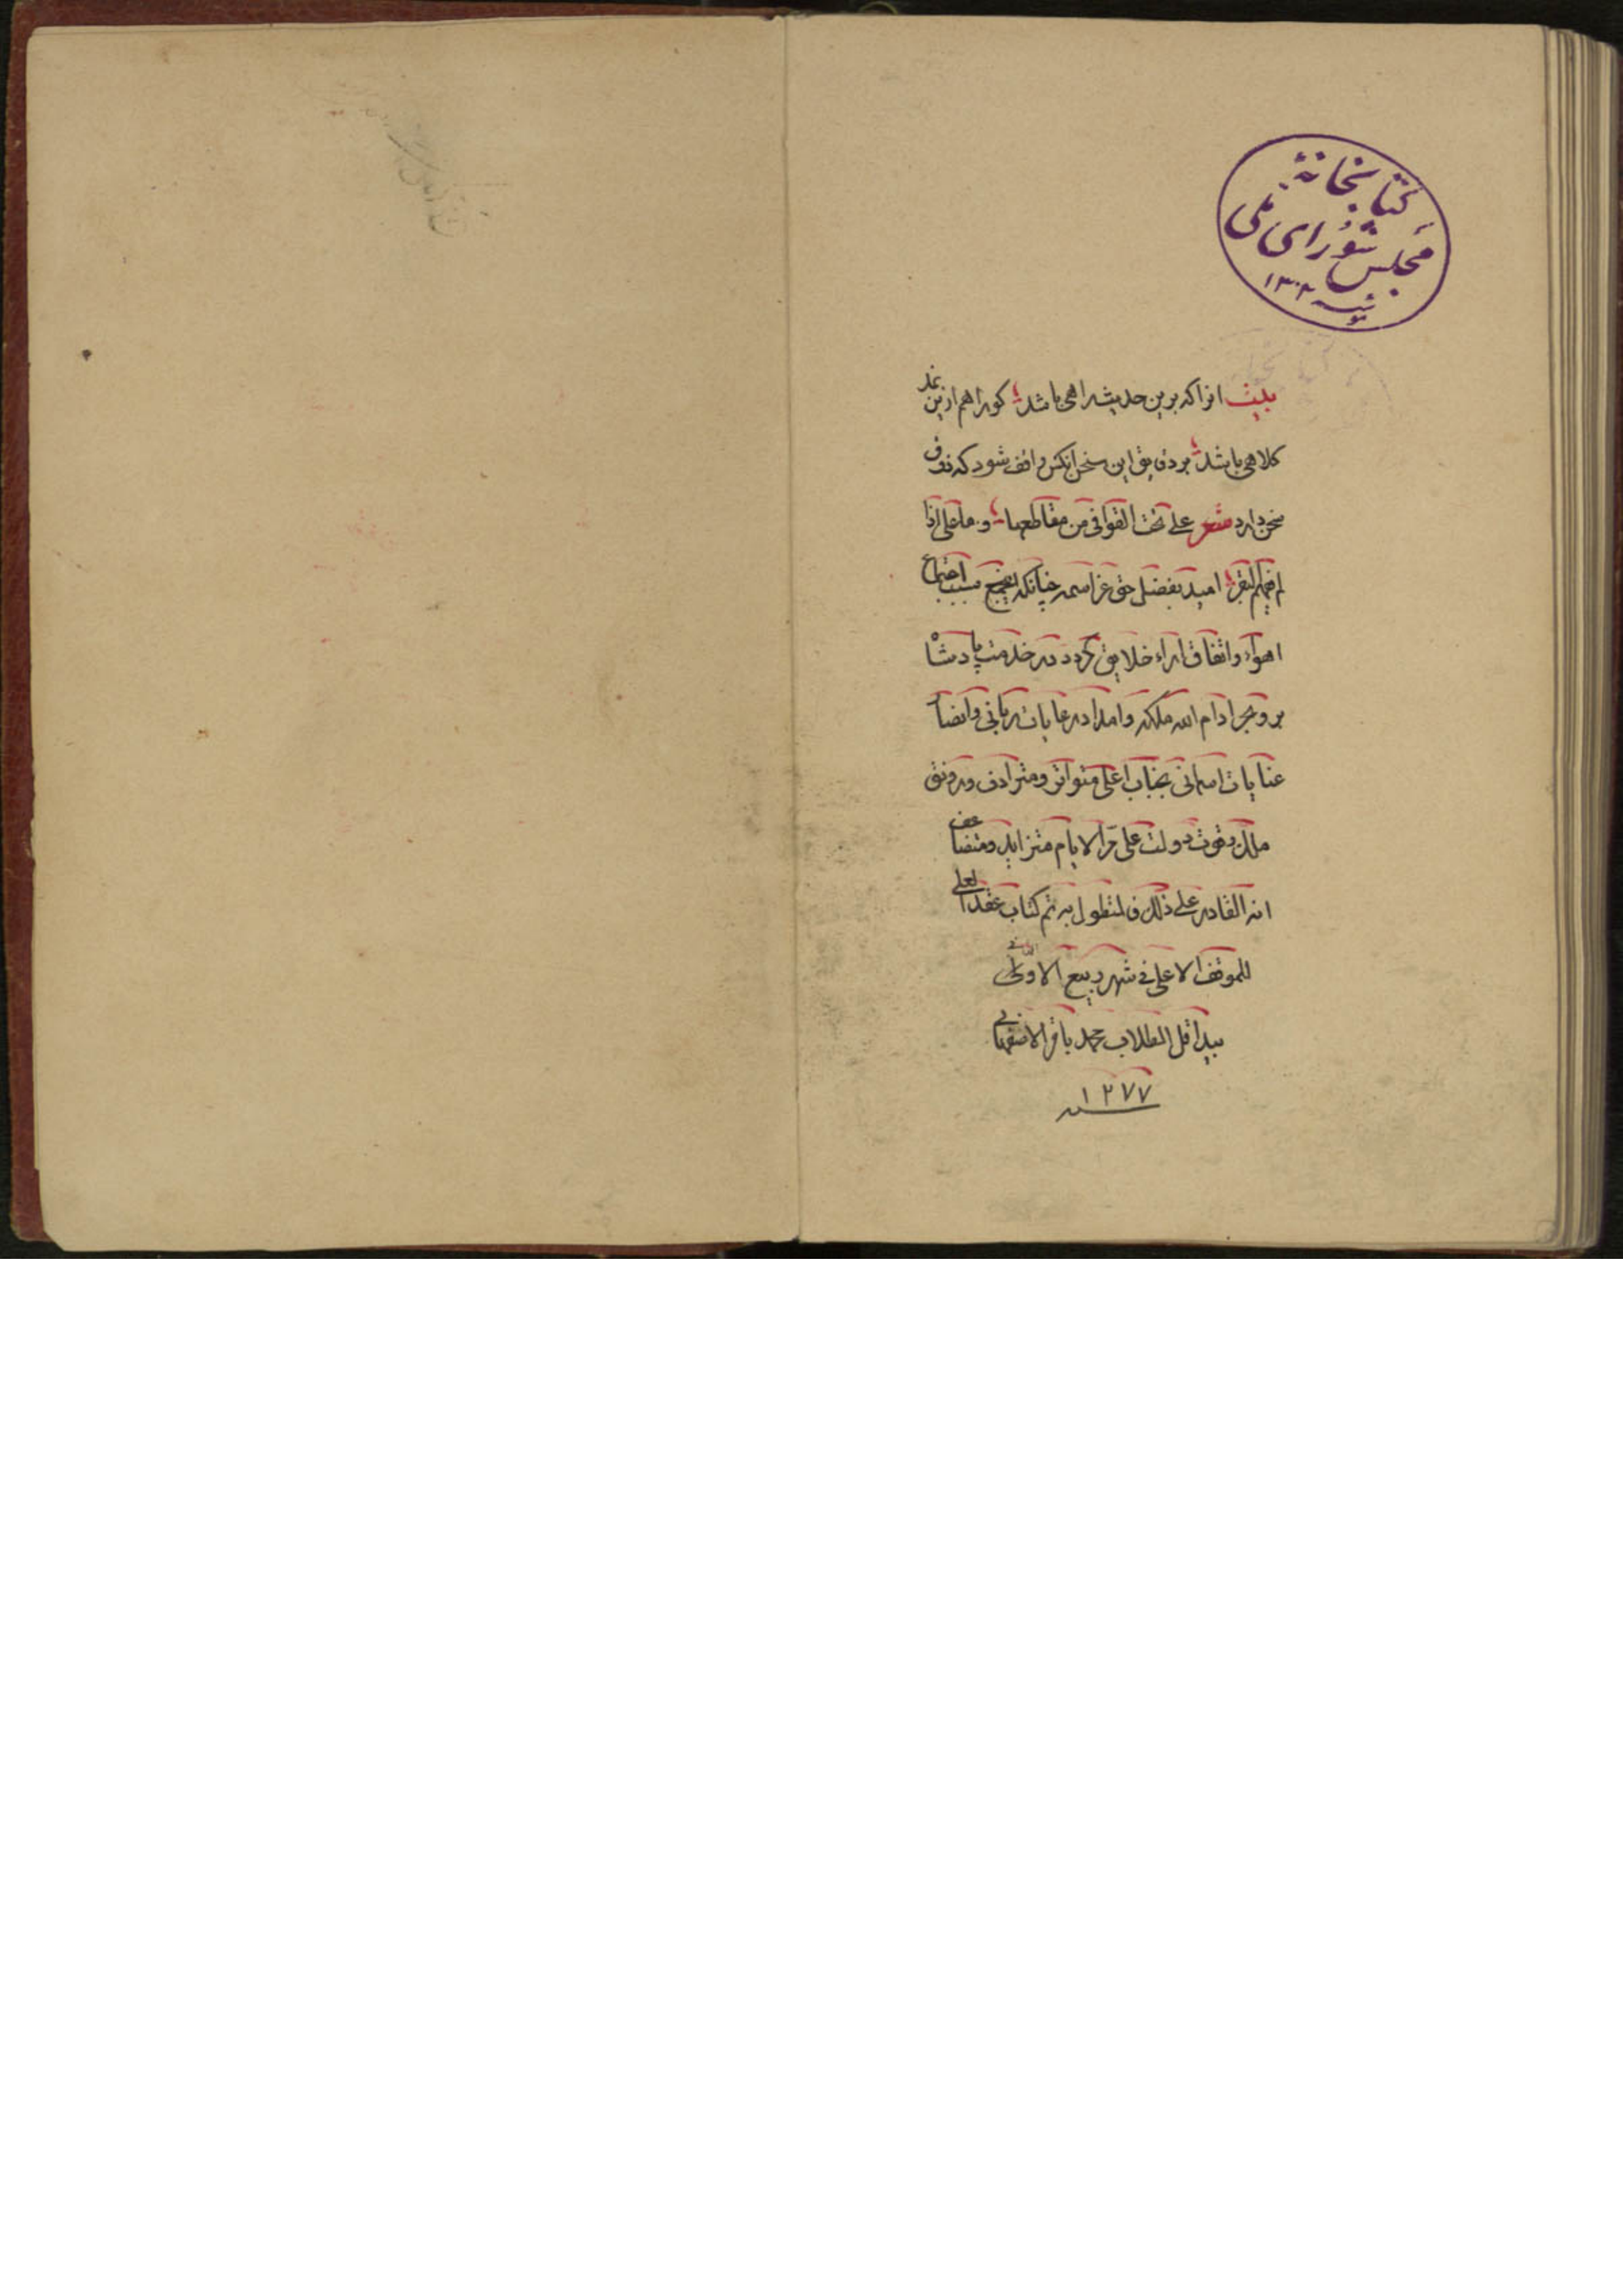 کتابخانهٔ
مجلس شورای ملی
۱۳۰۲
بیت انرا که برین حدیث راهی باشد کو را هم ازین نمد
کلاهی باشد بر دقایق این سخن انکس واقف شود که ذوق
سخن دارد شعر علی نحت القوافی من مقاطعها و ما علی اذا
لم افهم البقر امید بفضل حق عز اسمه چنانکه سبب اجتماع
اهواء و اتفاق اراء خلایق کردد در خدمت پادشاه
بر و بحر ادام الله ملکه و امداد رعایات ربانی و
عنایات اسمانی بجناب اعلی متواتر و مترادف و رونق
ملک و قوت دولت علی مر الایام متزاید و متضاعف
انه القادر علی ذلک و المتطول به تم کتاب عقد العلی
للموقف الاعلی فی شهر ربیع الاولی
بید اقل الطلاب محمد باقر الاصفهانی
سنه ۱۲۷۷